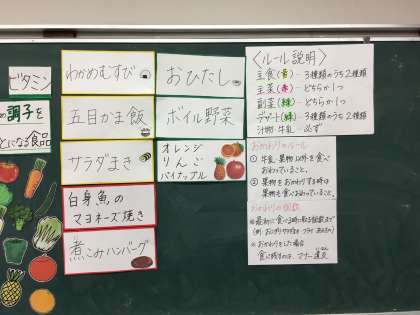 ビタミン
の調子を
とになる食品
わかめむすび
五目かま飯
サラダまき
白身魚のマ
ヨネーズ焼き
煮こみハンバーグ
おひたし
ボイル野菜
オレンジ
りんご
パイナップル
〈ルール説明〉
主食(黄)－3種類のうち2種類
主菜(赤)－どちらか1つ
副菜(緑)－どちらか1つ
デザート(緑)－3種類のうち2種類
汁物・牛乳－必ず
おかわりのルール
① 牛乳、果物以外を食べ
おわっていること。
② 果物をおかわりする時は
果物も食べおわっていること。
おかわりの個数
※最初に食べる時に取る個数まで
※おかわりをした場合
食べ残すのは、マナー違反